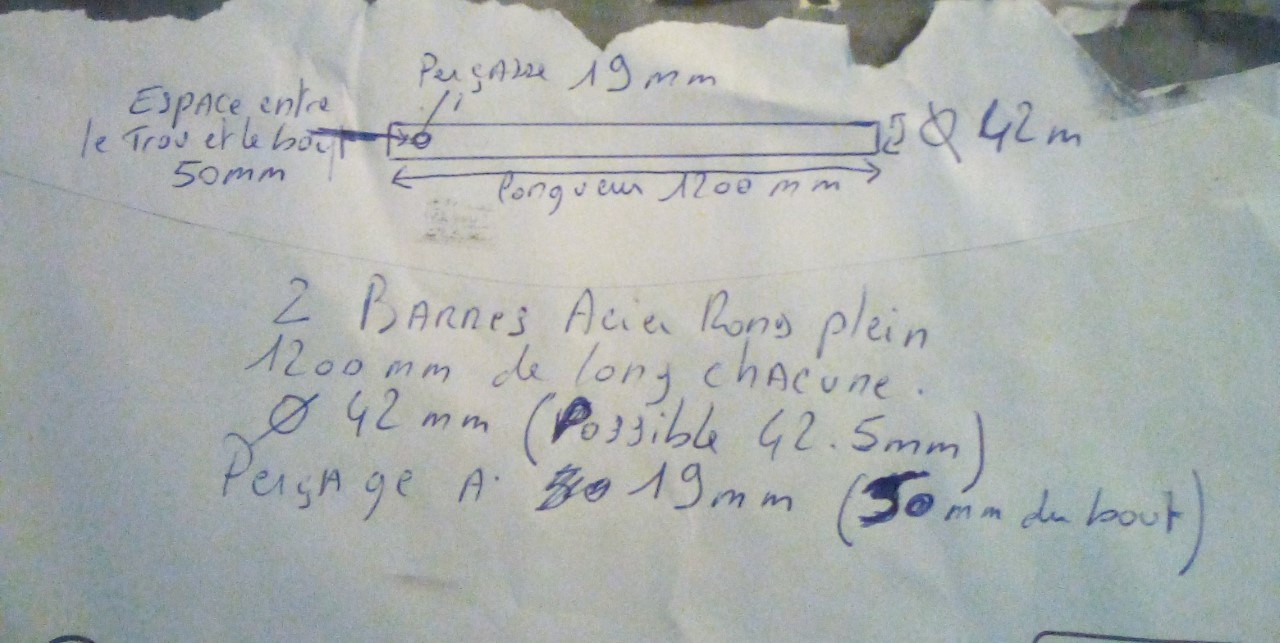 Perçage 19 mm
Espace entre
le Trou et le bout
50mm
Ø 42 m
longueur 1200 mm
2 BARRES Acier Rond plein
1200 mm de long chacune.
Ø 42 mm (Possible 42.5mm)
Perçage A 19mm (50mm du bout)